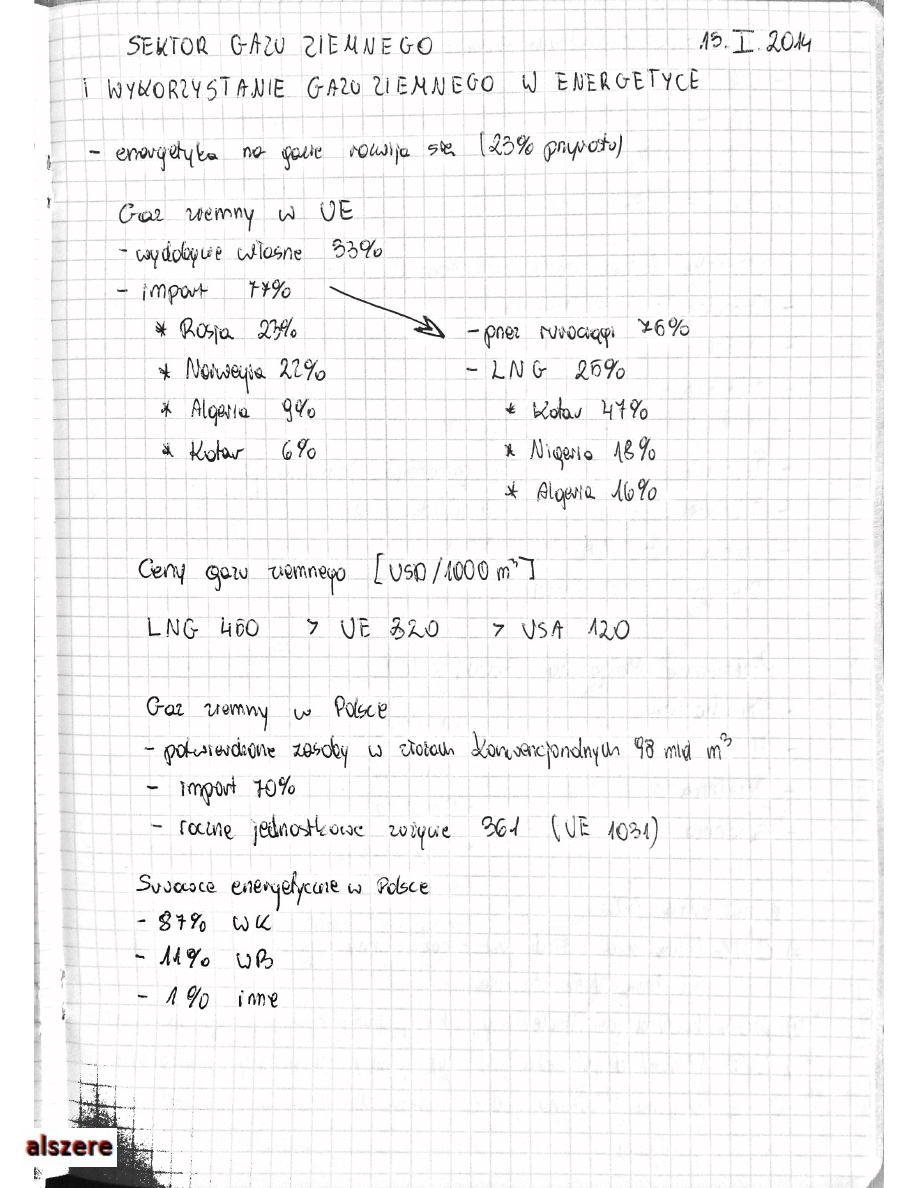 SEKTOR GAZU ZIEMNEGO 15.I.2014
i WYKORZYSTANIE GAZU ZIEMNEGO W ENERGETYCE
- energetyka na gazie rozwija się (23% przyrostu)
Gaz ziemny w UE
- wydobycie własne 33%
- import 77%
* Rosja 23%
* Norwegia 22%
* Algeria 9%
* Katar 6%
- przez rurociągi 76%
- LNG 25%
* Katar 47%
* Nigeria 18%
* Algeria 16%
Ceny gazu ziemnego [USD/1000 m³]
LNG 460 > UE 320 > USA 120
Gaz ziemny w Polsce
- potwierdzone zasoby w złożach konwencjonalnych 98 mld m³
- import 70%
- roczne jednostkowe zużycie 361 (UE 1031)
Surowce energetyczne w Polsce
- 87% WK
- 11% WB
- 1% inne
alszere